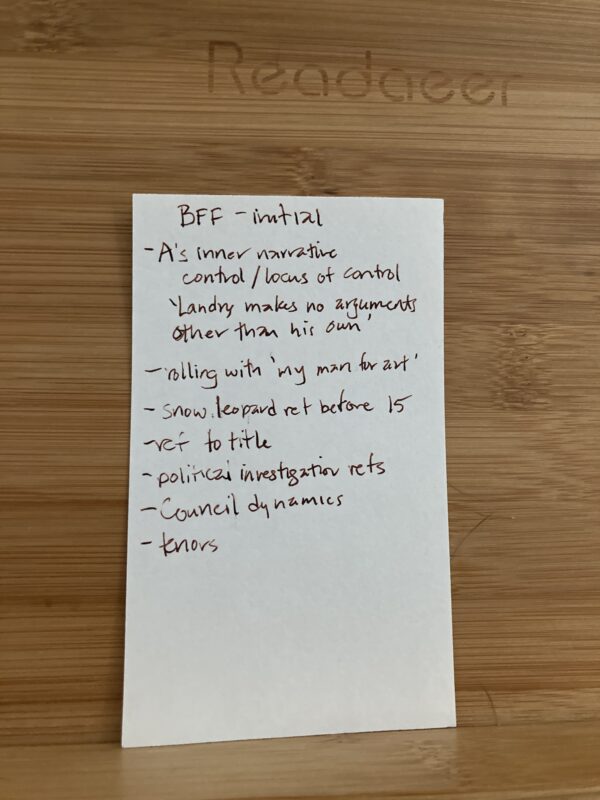 Readaeer
BFF - initial
- A's inner narrative
control / locus of control
'Landry makes no arguments
other than his own'
- rolling with 'my man for art'
- snow leopard ref before 15
- ref to title
- political investigation refs
- Council dynamics